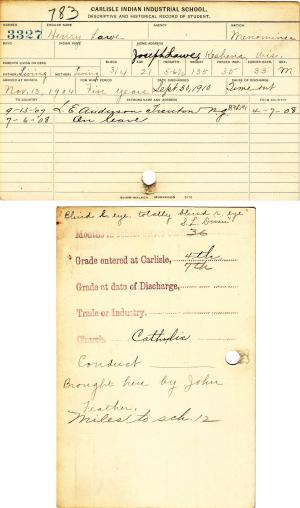 783
CARLISLE INDIAN INDUSTRIAL SCHOOL.
DESCRIPTIVE AND HISTORICAL RECORD OF STUDENT.
NUMBER ENGLISH NAME AGENCY NATION
3327 Henry Lawe Menominee
BAND INDIAN NAME HOME ADDRESS
Joseph Lawe, Keshena Wis.
PARENTS LIVING OR DEAD BLOOD AGE HEIGHT WEIGHT FORCED INSP. FORCED EXPR. SEX
Living Living 3/4 21 135 35 33 M
ARRIVED AT SCHOOL FOR WHAT PERIOD DATE DISCHARGED CAUSE OF DISCHARGE
Nov. 13, 1904 Five years Sept 30, 1910 Time out
TO COUNTRY PATRONS NAME AND ADDRESS FROM COUNTRY
9-13-07 L E Anderson Trenton N.J. 4-7-08
7-6-08 On leave
Blind L eye totally blind r. eye
36
Grade entered at Carlisle, 4th
7th
Grade at date of Discharge,
Trade or Industry.
Church. Catholic
Conduct
Brought here by John
Feather.
Miles to sch. 12